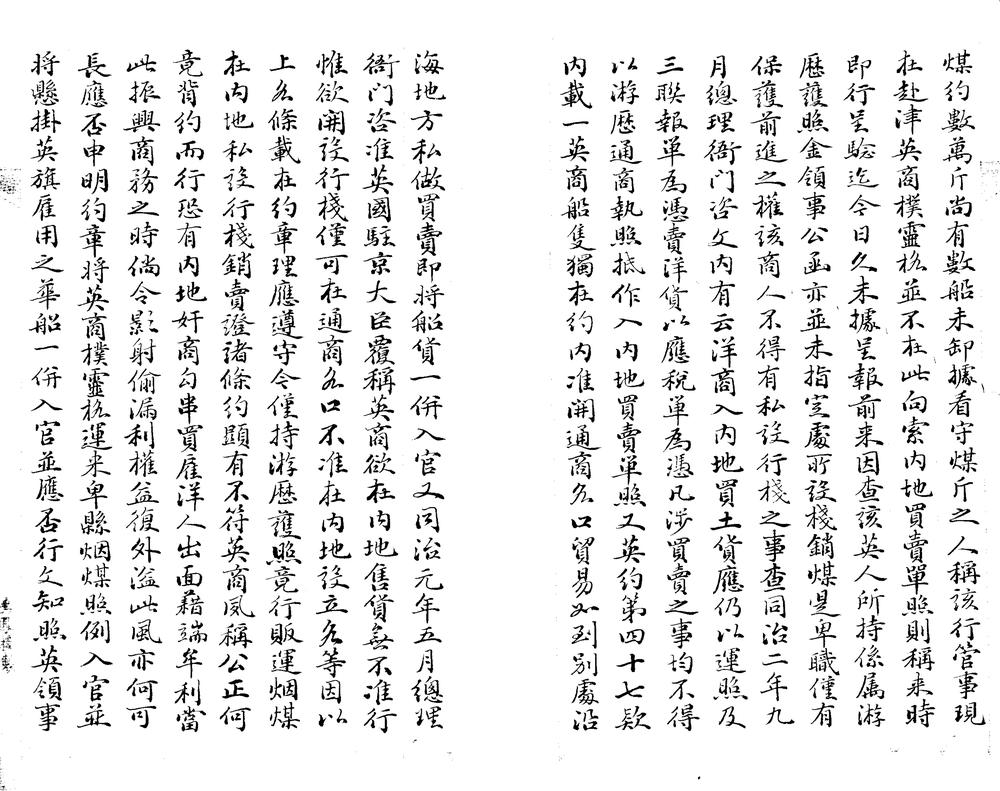 煤約數萬斤尚有數船未卸據看守煤斤之人稱該行管事現
在赴津英商樸靈捴並不在此向索內地買賣單照則稱来時
即行呈驗迄今日久未據呈報前来因查該英人所持係属游
歷護照金領事公函亦並未指定處所設棧銷煤是卑職僅有
保護前進之權該商人不得有私設行棧之事查同治二年九
月總理衙门咨文內有云洋商入內地買土貨應仍以運照及
三聯報单為憑賣洋貨以應稅単為憑凡涉買賣之事均不得
以游歷通商執照抵作入內地買賣単照又英約第四十七欵
內載一英商船隻獨在約內准開通商各口貿易如到别處沿
海地方私做買賣即将船貨一併入官又同治元年五月總理
衙门咨准英國駐京大臣覆稱英商欲在内地售貨無不准行
惟欲開設行棧僅可在通商各口不准在內地設立各等因以
上各條載在約章理應遵守今僅持游歷護照竟行販運烟煤
在内地私設行棧銷賣證諸條約顯有不符英商夙稱公正何
竟背約而行恐有内地奸商勾串買雇洋人出面藉端牟利當
此振興商務之時倘令影射偷漏利權益復外溢此風亦何可
長應否申明約章将英商樸靈捴運来卑縣烟煤照例入官並
将懸掛英旗雇用之華船一併入官並應否行文知照英領事